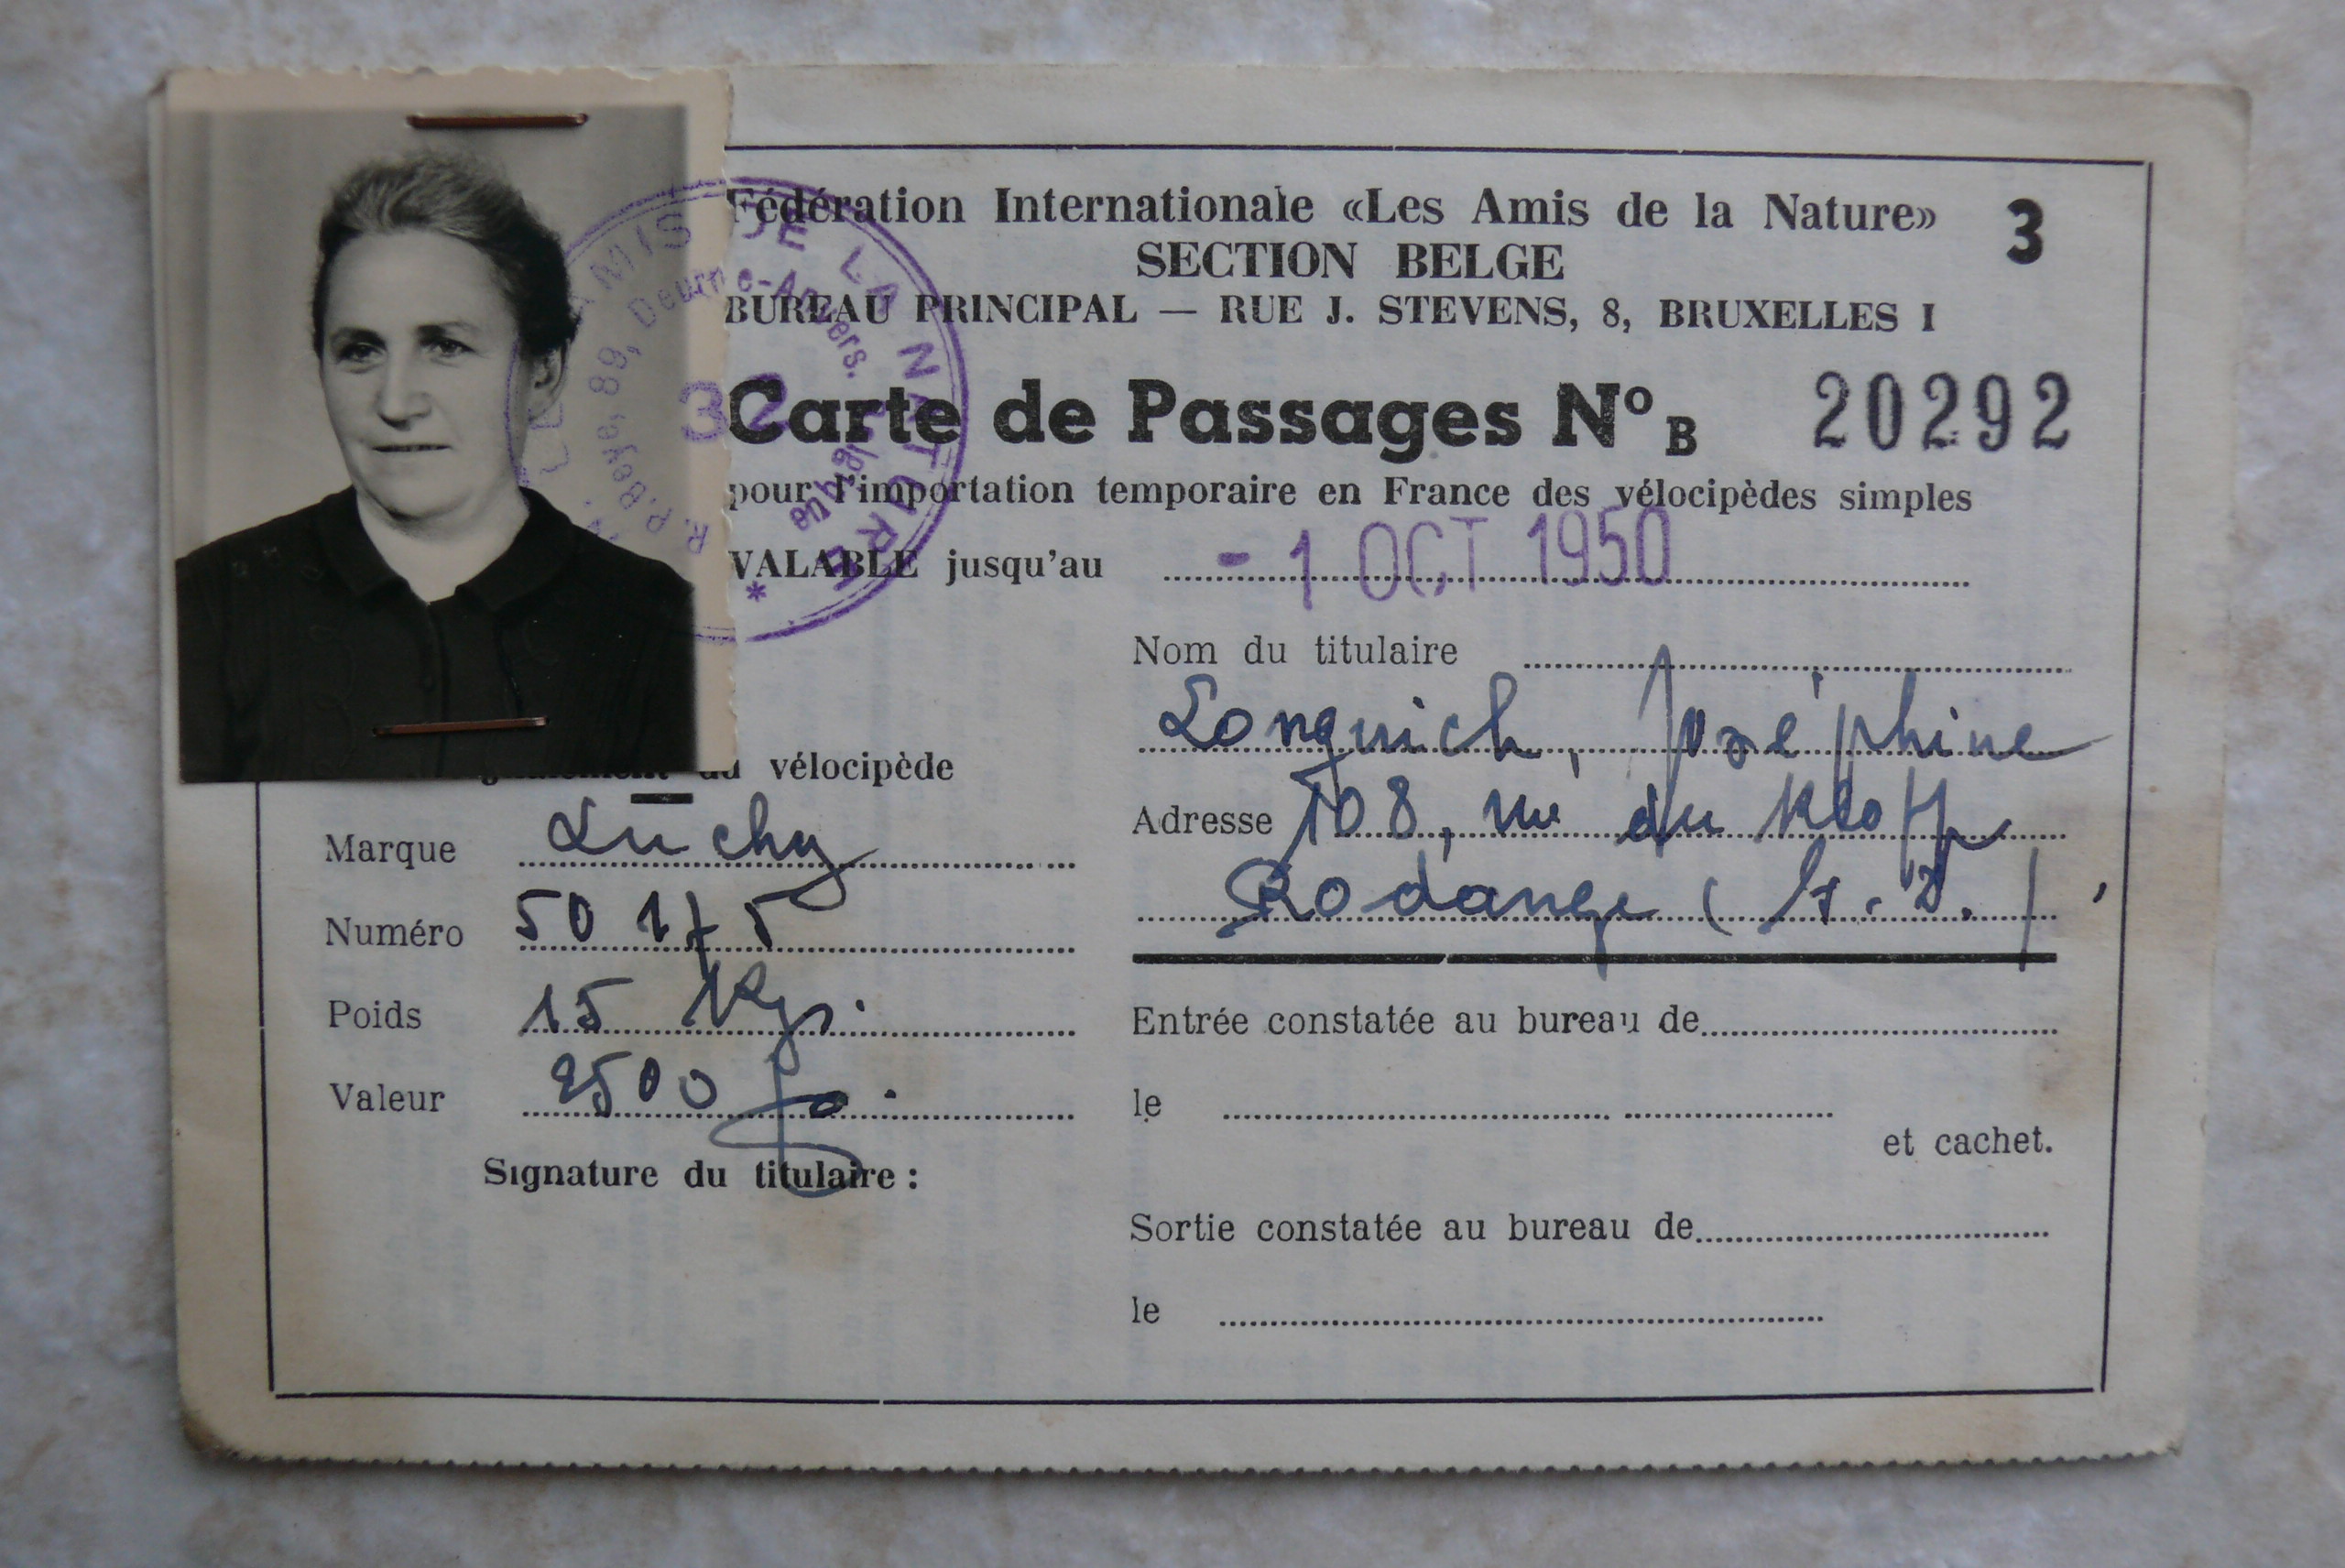 Fédération Internationale «Les Amis de la Nature» 3
SECTION BELGE
BUREAU PRINCIPAL — RUE J. STEVENS, 8, BRUXELLES I
Carte de Passages Nº B 20292
pour l'importation temporaire en France des vélocipèdes simples
VALABLE jusqu'au - 1 OCT 1950
AMIS DE LA NATURE
89, Deurne-Anvers.
32
Nom du titulaire
Longuich, Joséphine
Adresse 108, rue du
Rodange (G.D.)
vélocipède
Marque Luchy
Numéro 50175
Poids 15 Kgs.
Valeur 2500
Signature du titulaire :
Entrée constatée au bureau de
le
et cachet.
Sortie constatée au bureau de
le